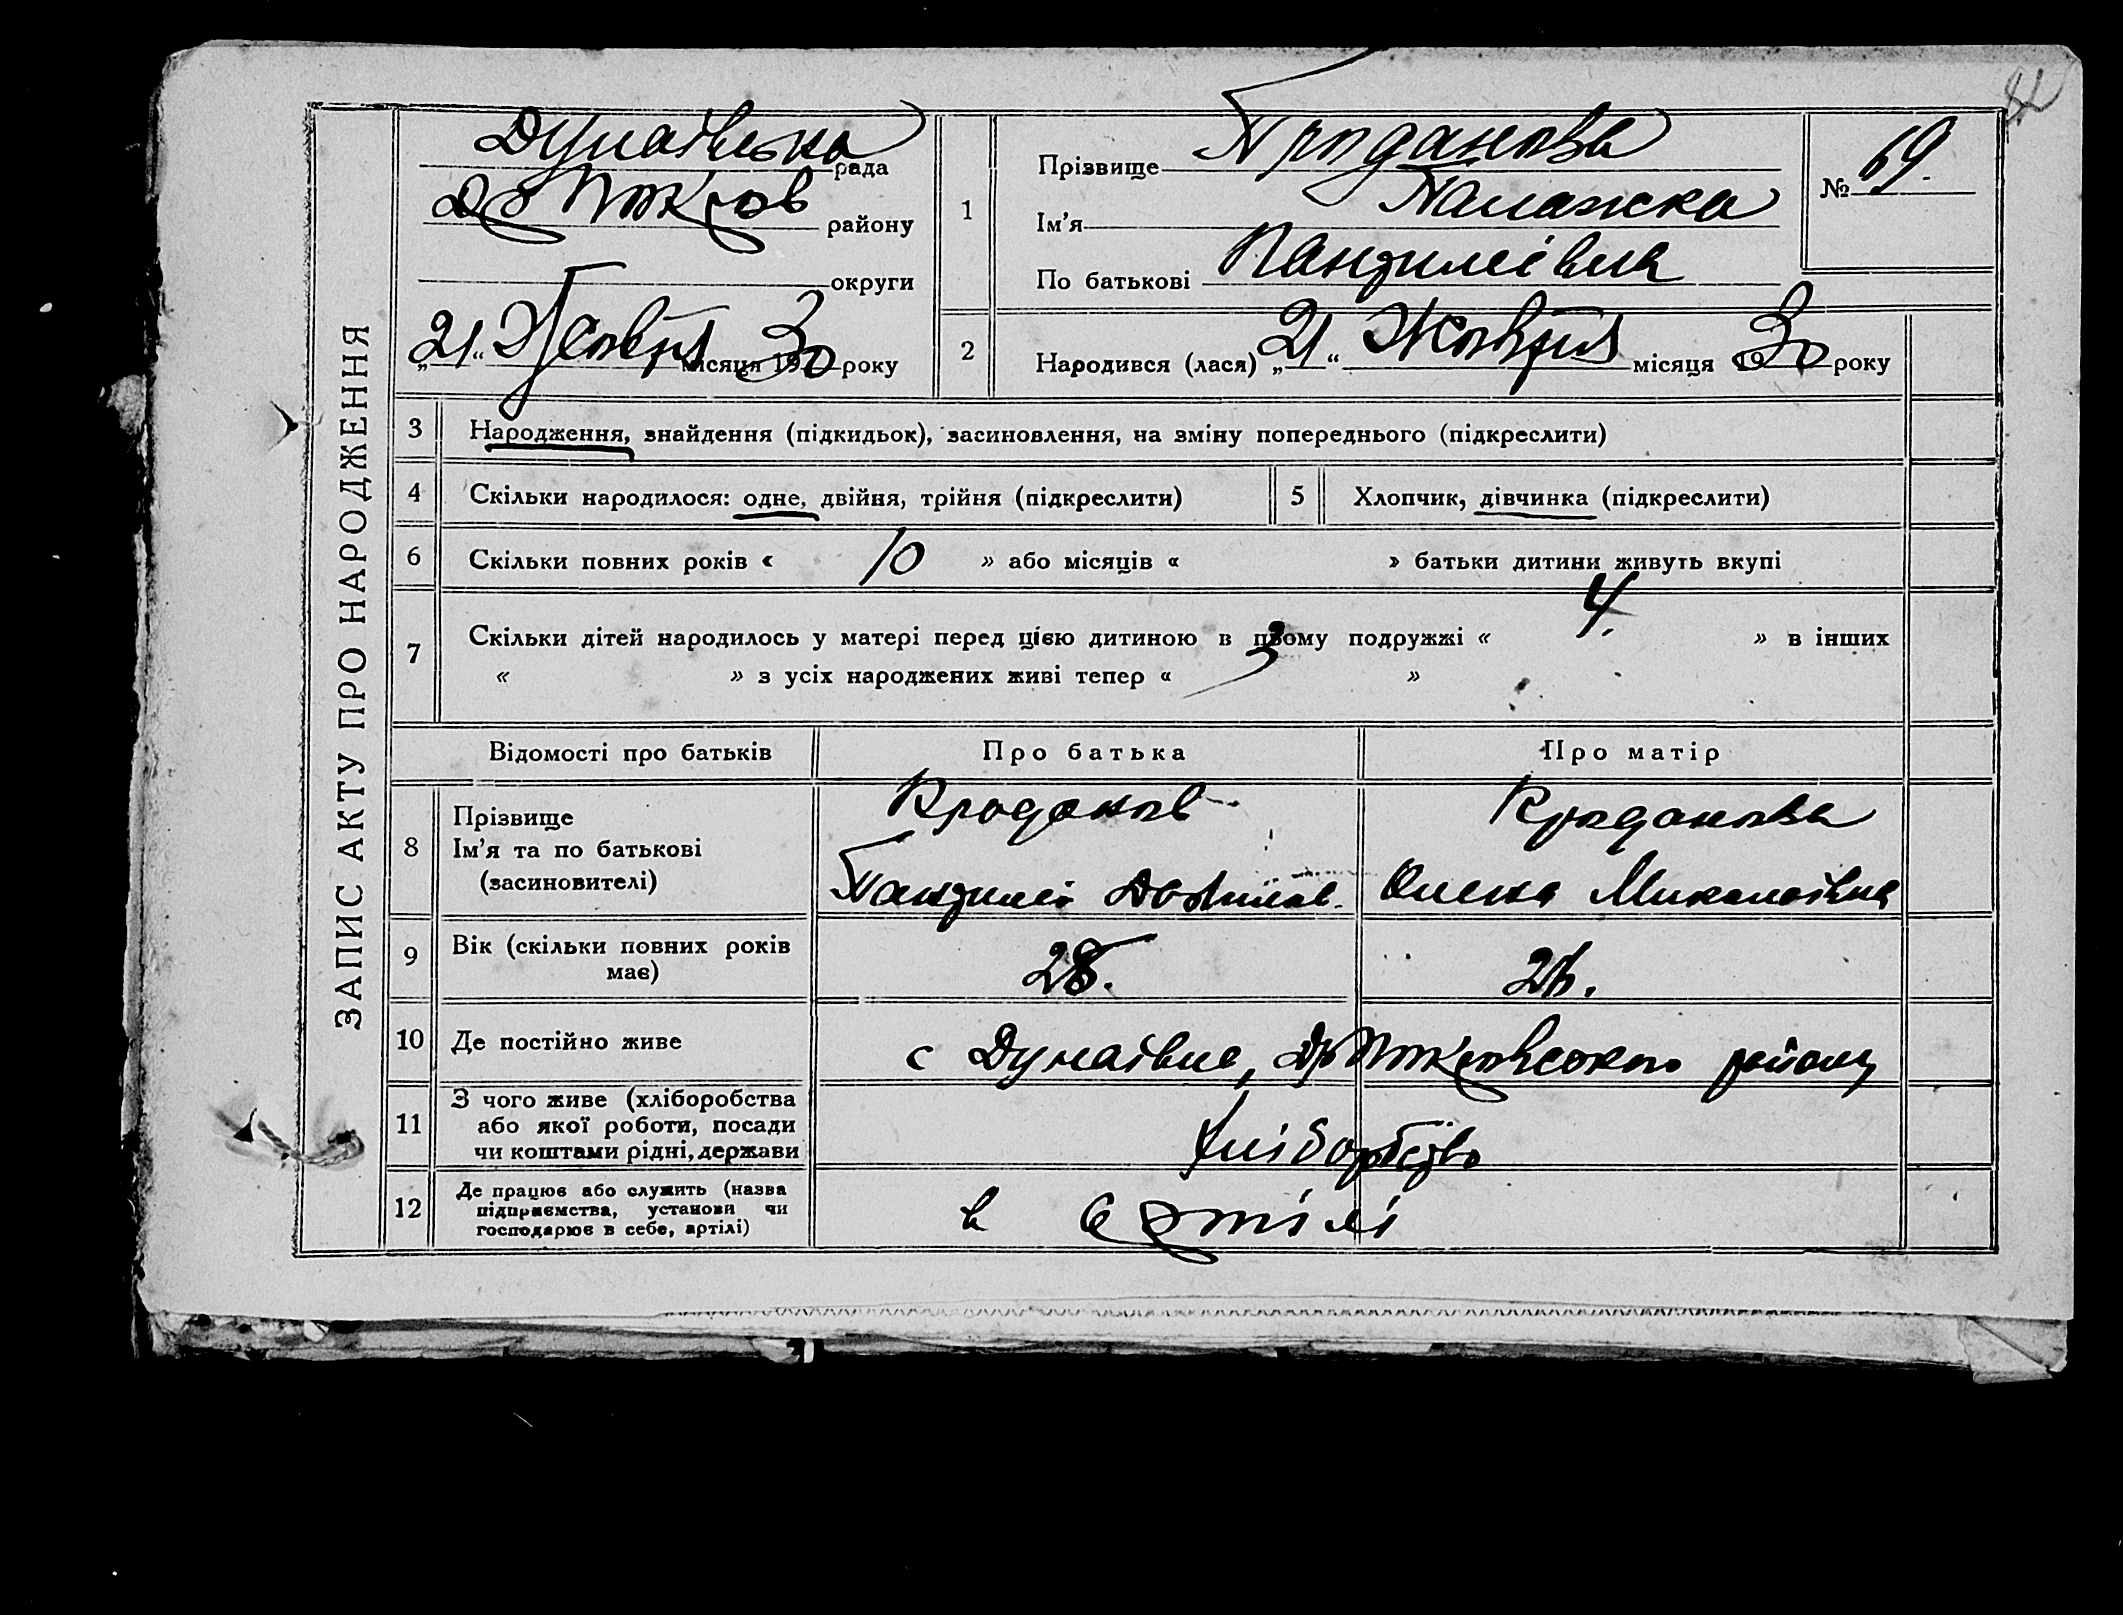 ЗАПИС АКТУ ПРО НАРОДЖЕННЯ
Дунаївська рада
район
округи
„21“ Жовтня місяця 1930 року
1
Прізвище Проданова
Ім'я Палажка
По батькові Пантиліївна
№ 69.
2
Народився (лася) „21“ Жовтня місяця 1930 року
3 Народження, знайдення (підкидьок), засиновлення, на зміну попереднього (підкреслити)
4 Скільки народилося: одне, двійня, трійня (підкреслити)
5 Хлопчик, дівчинка (підкреслити)
6 Скільки повних років « 10 » або місяців « » батьки дитини живуть вкупі
7 Скільки дітей народилось у матері перед цією дитиною в цьому подружжі « 4. » в інших
« » з усіх народжених живі тепер « 3 »
Відомості про батьків Про батька Про матір
8 Прізвище
Ім'я та по батькові
(засиновителі)
Проданов
Пантилій
Проданова
Олена Миколаївна
9 Вік (скільки повних років
має)
28. 26.
10 Де постійно живе
с Дунаївка, району
11 З чого живе (хліборобства
або якої роботи, посади
чи коштами рідні, держави
хліборобство
12 Де працює або служить (назва
підприємства, установи чи
господарює в себе, артілі)
в артілі